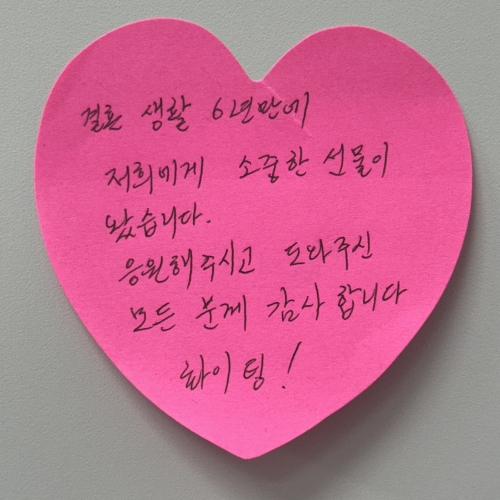 결혼 생활 6년만에
저희에게 소중한 선물이
왔습니다.
응원해주시고 도와주신
모든 분께 감사합니다
화이팅!